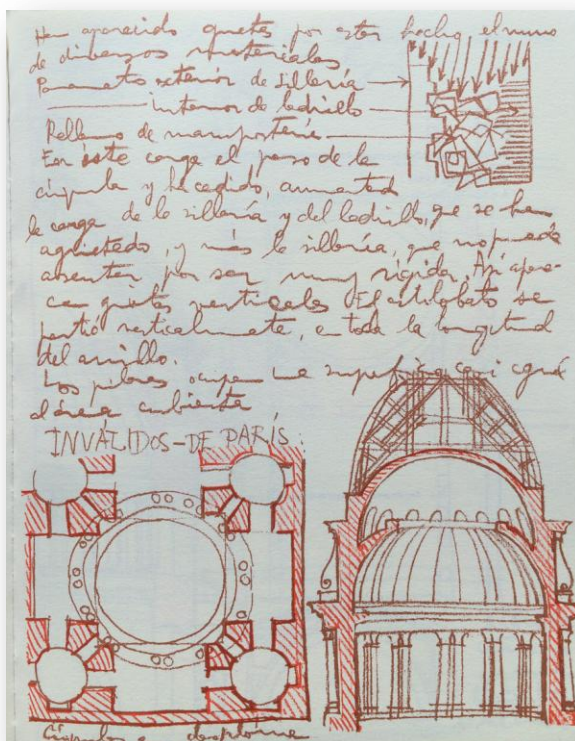 Han aparecido grietas por estar hecho el muro
de diversos materiales
Paramento exterior de sillería
interior de ladrillo
Relleno de mampostería
En éste carga el peso de la
cúpula y ha cedido, aumentado
la carga de la sillería y del ladrillo, que se han
agrietado, y más la sillería, que no puede
asentar por ser muy rígida. Así apare-
cen grietas verticales El estilobato se
partió verticalmente, en toda la longitud
del anillo.
Los pilares ocupan una superficie casi igual
al área cubierta
INVÁLIDOS-DE PARÍS.
Cúpula desplome